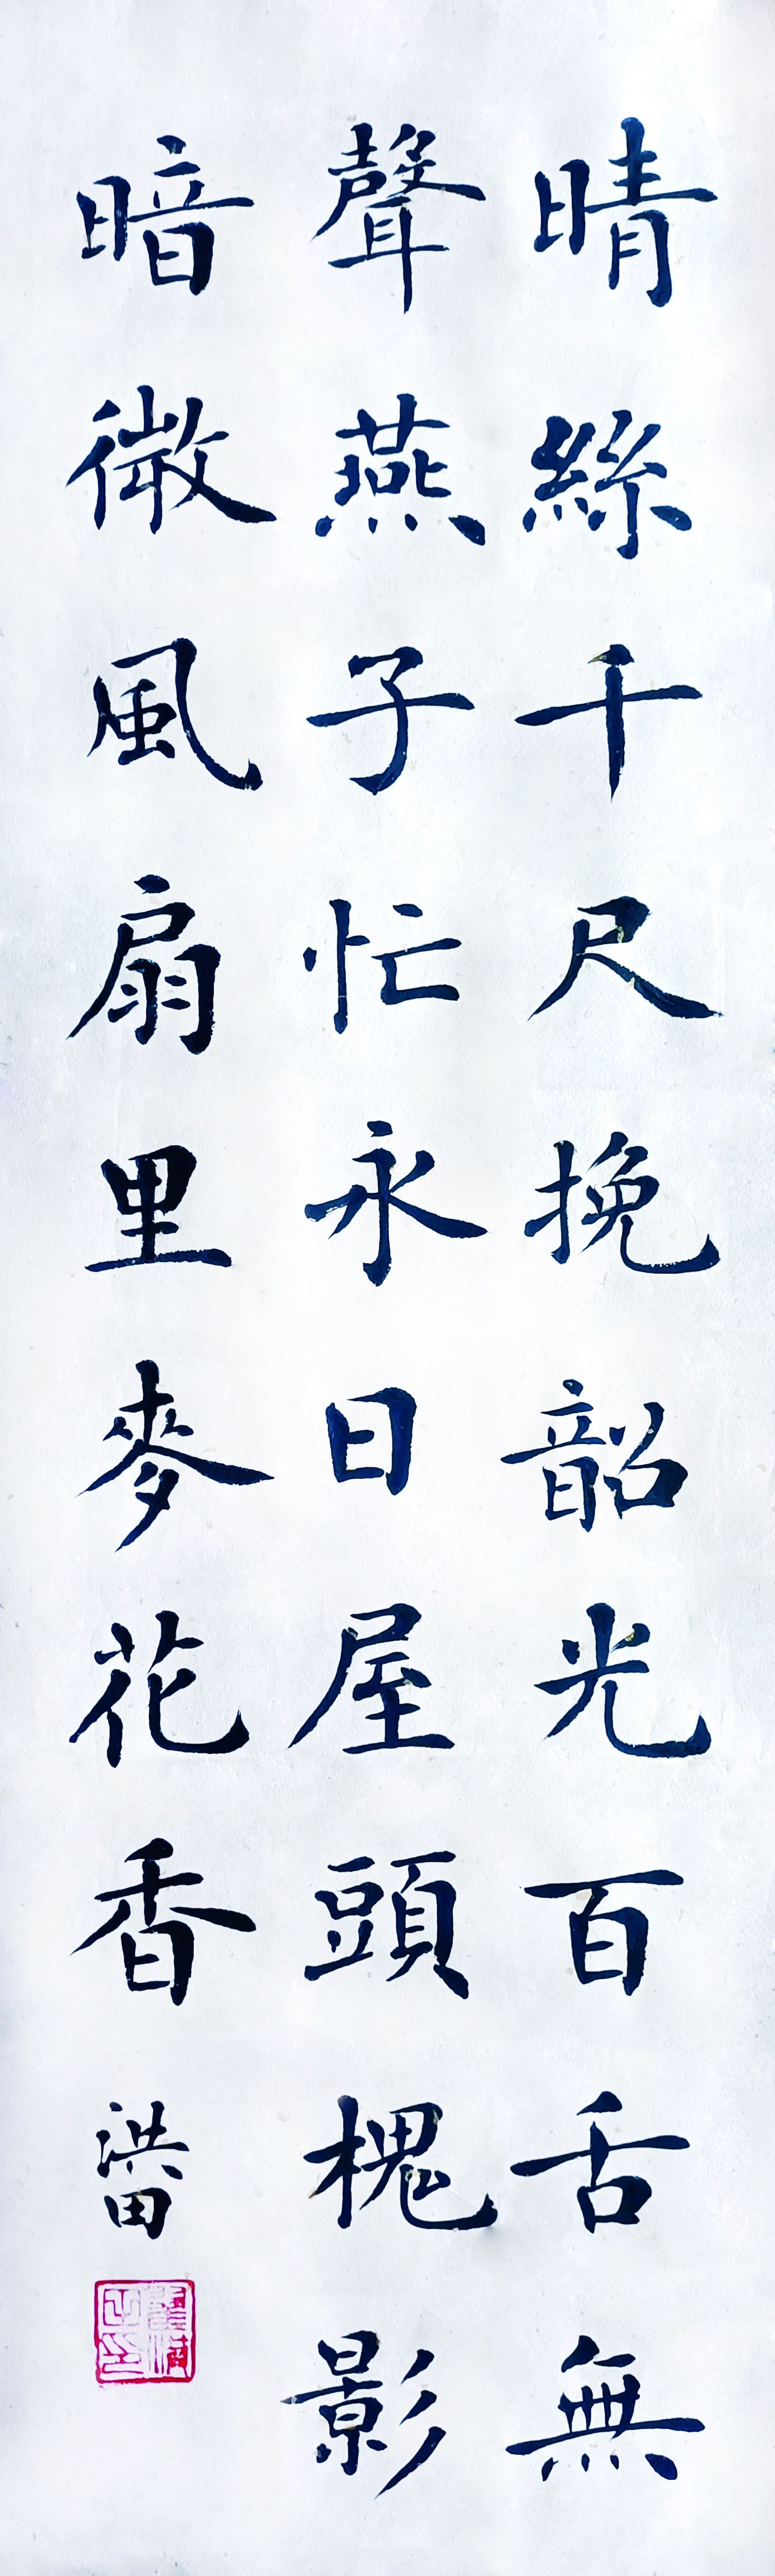 晴絲千尺挽韶光百舌無
聲燕子忙永日屋頭槐影
暗微風扇里麥花香
洪田